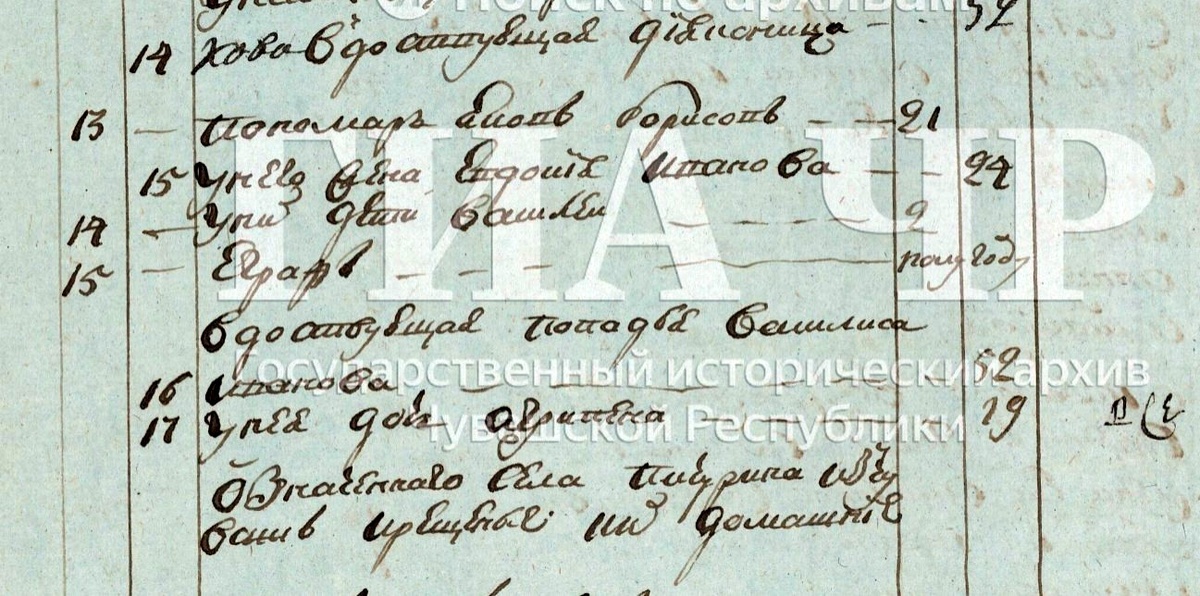 Поиск по архивам
52
14 хова вдовствующая дїяконица
13 Пономарь Яковъ Борисовъ 21
15 у него жена Евдокїя Иванова 24
14 у них дѣти Василеи 2
15 Еграфъ полугоду
вдовствующая попадья Василиса
16 Иванова 52
17 у нея дочь Агрипена 19
Означеннаго села Пичурина из чу
ваш крещеные и их домашнїе
ГИА ЧР
Государственный исторический архив
Чувашской Республики